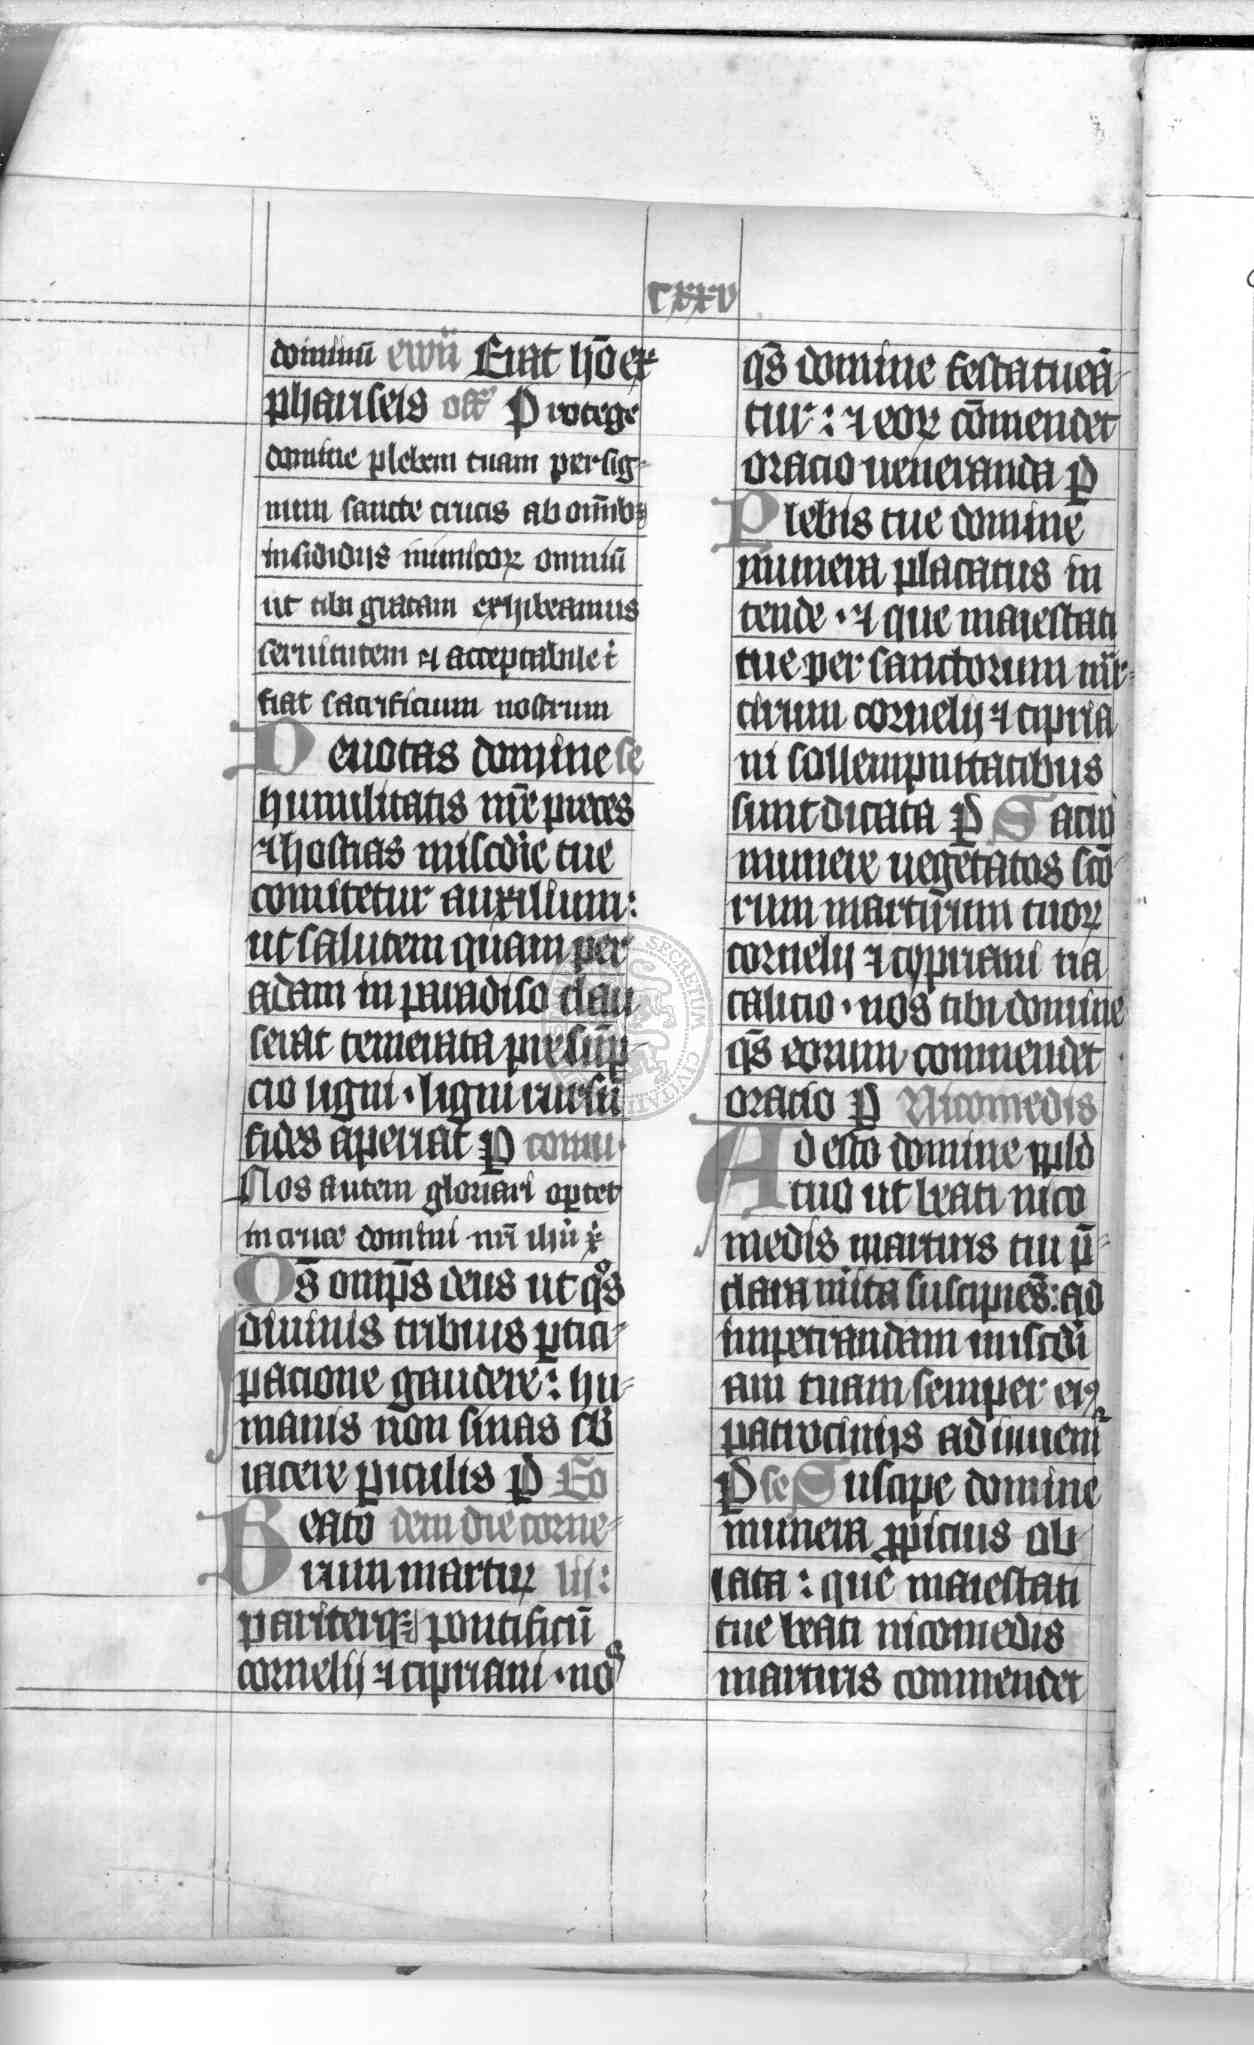 cxxv
dominū ewīī Erat hō ex
phariseis off Protege
domine plebem tuam per sig-
num sancte crucis ab omībꝫ
insididijs inimicoꝝ omniū
ut tibi gratam exhibeamus
seruitutem ⁊ acceptabile t
fiat sacrificium nostrum
Deuotas domine se
humilitatis nr̄e preces
⁊ hostias miscd̄ie tue
comitetur auxilium:
ut salutem quam per
adam in paradiso clau
serat temerata presūp-
cio ligni · ligni rursū
fides aperiat P comu.
Nos autem gloriari oꝑtet
in cruce domini nr̄i ihū x
Os̄ omp̄s deus ut qͦs
diuinis tribuis ꝑtici-
pacione gaudere: hu-
manis non sinas sb̄
iacere ꝑiculis P Eo
Beato dem die corne-
rum martiꝝ lij:
pariterqꝫ pontificū
cornelij ⁊ cipriani · nos
qs̄ domine festa tueā-
tur: ⁊ eoꝝ cōmendet
oracio ueneranda P
Plebis tue domine
munera placatus in
tende · ⁊ que maiestati
tue per sanctorum mr̄-
tirum cornelij ⁊ cipria
ni sollempnitatibus
sunt dicata P Sacro
munere uegetatos sc̄o-
rum martirum tuoꝝ
cornelij ⁊ cypriani na
talicio · nos tibi domine
qs̄ eorum commendet
oracio P Nicomedis
Adesto domine ꝓplo
tuo ut beati nico
medis martiris tui p̄-
clara mīta suscipiēs: ad
impetrandam miscdi
am tuam semper eiꝰ
patrocinijs adiuuemr
P se Suscipe domine
munera ꝓpicius ob-
lata: que maiestati
tue beati nicomedis
martiris commendet